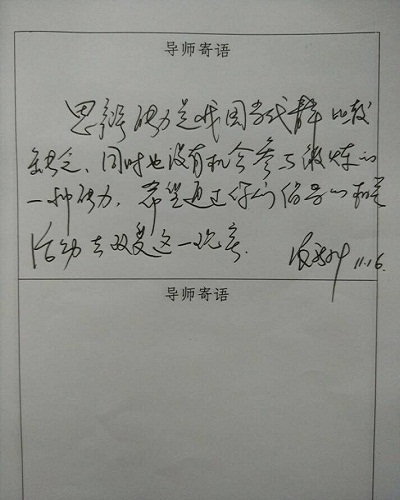 导师寄语
思辨能力是我国当代青年比较
缺乏、同时也没有机会参与锻炼的
一种能力，希望通过你们倡导的相关
活动去改变这一现实.
11.16.
导师寄语